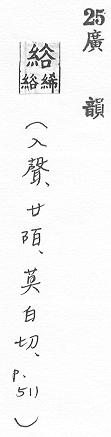 25廣韻
綌
絺綌
(入聲、廿陌、莫白切、p.511)